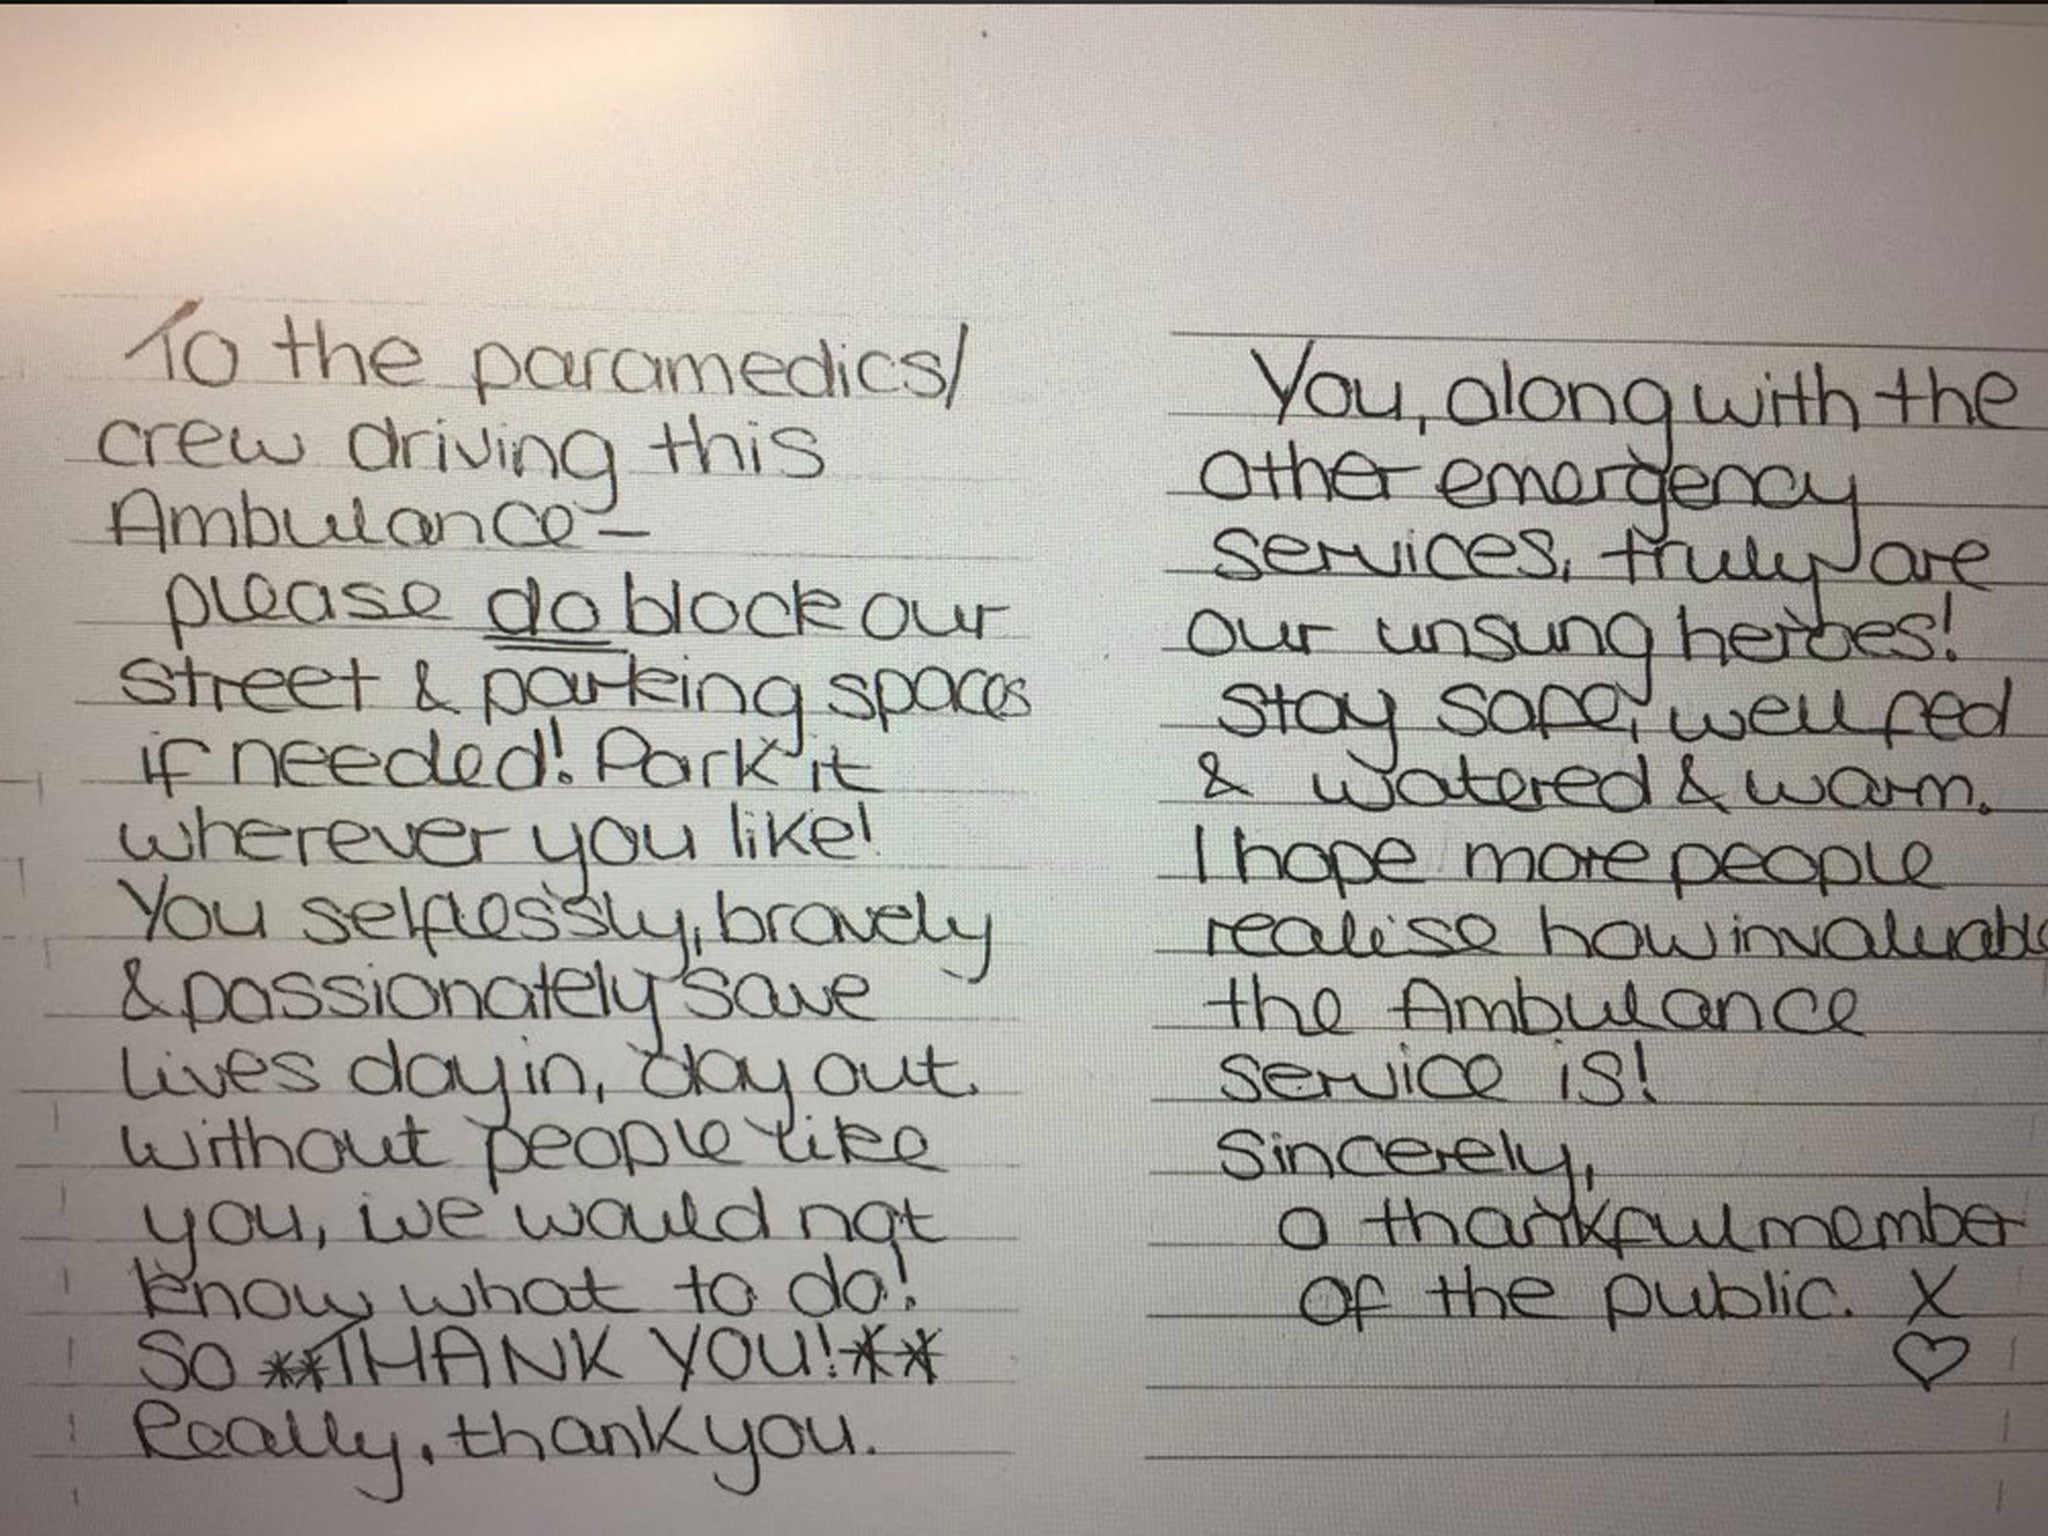 To the paramedics/
crew driving this
Ambulance -
please do block our
street & parking spaces
if needed! Park it
wherever you like!
You selflessly, bravely
& passionately save
lives day in, day out.
without people like
you, we would not
know what to do!
So **THANK YOU!**
Really, thank you.
You, along with the
other emergency
services, truly are
our unsung heroes!
Stay safe, well fed
& watered & warm.
I hope more people
realise how invaluable
the Ambulance
service is!
Sincerely,
a thankful member
of the public. X